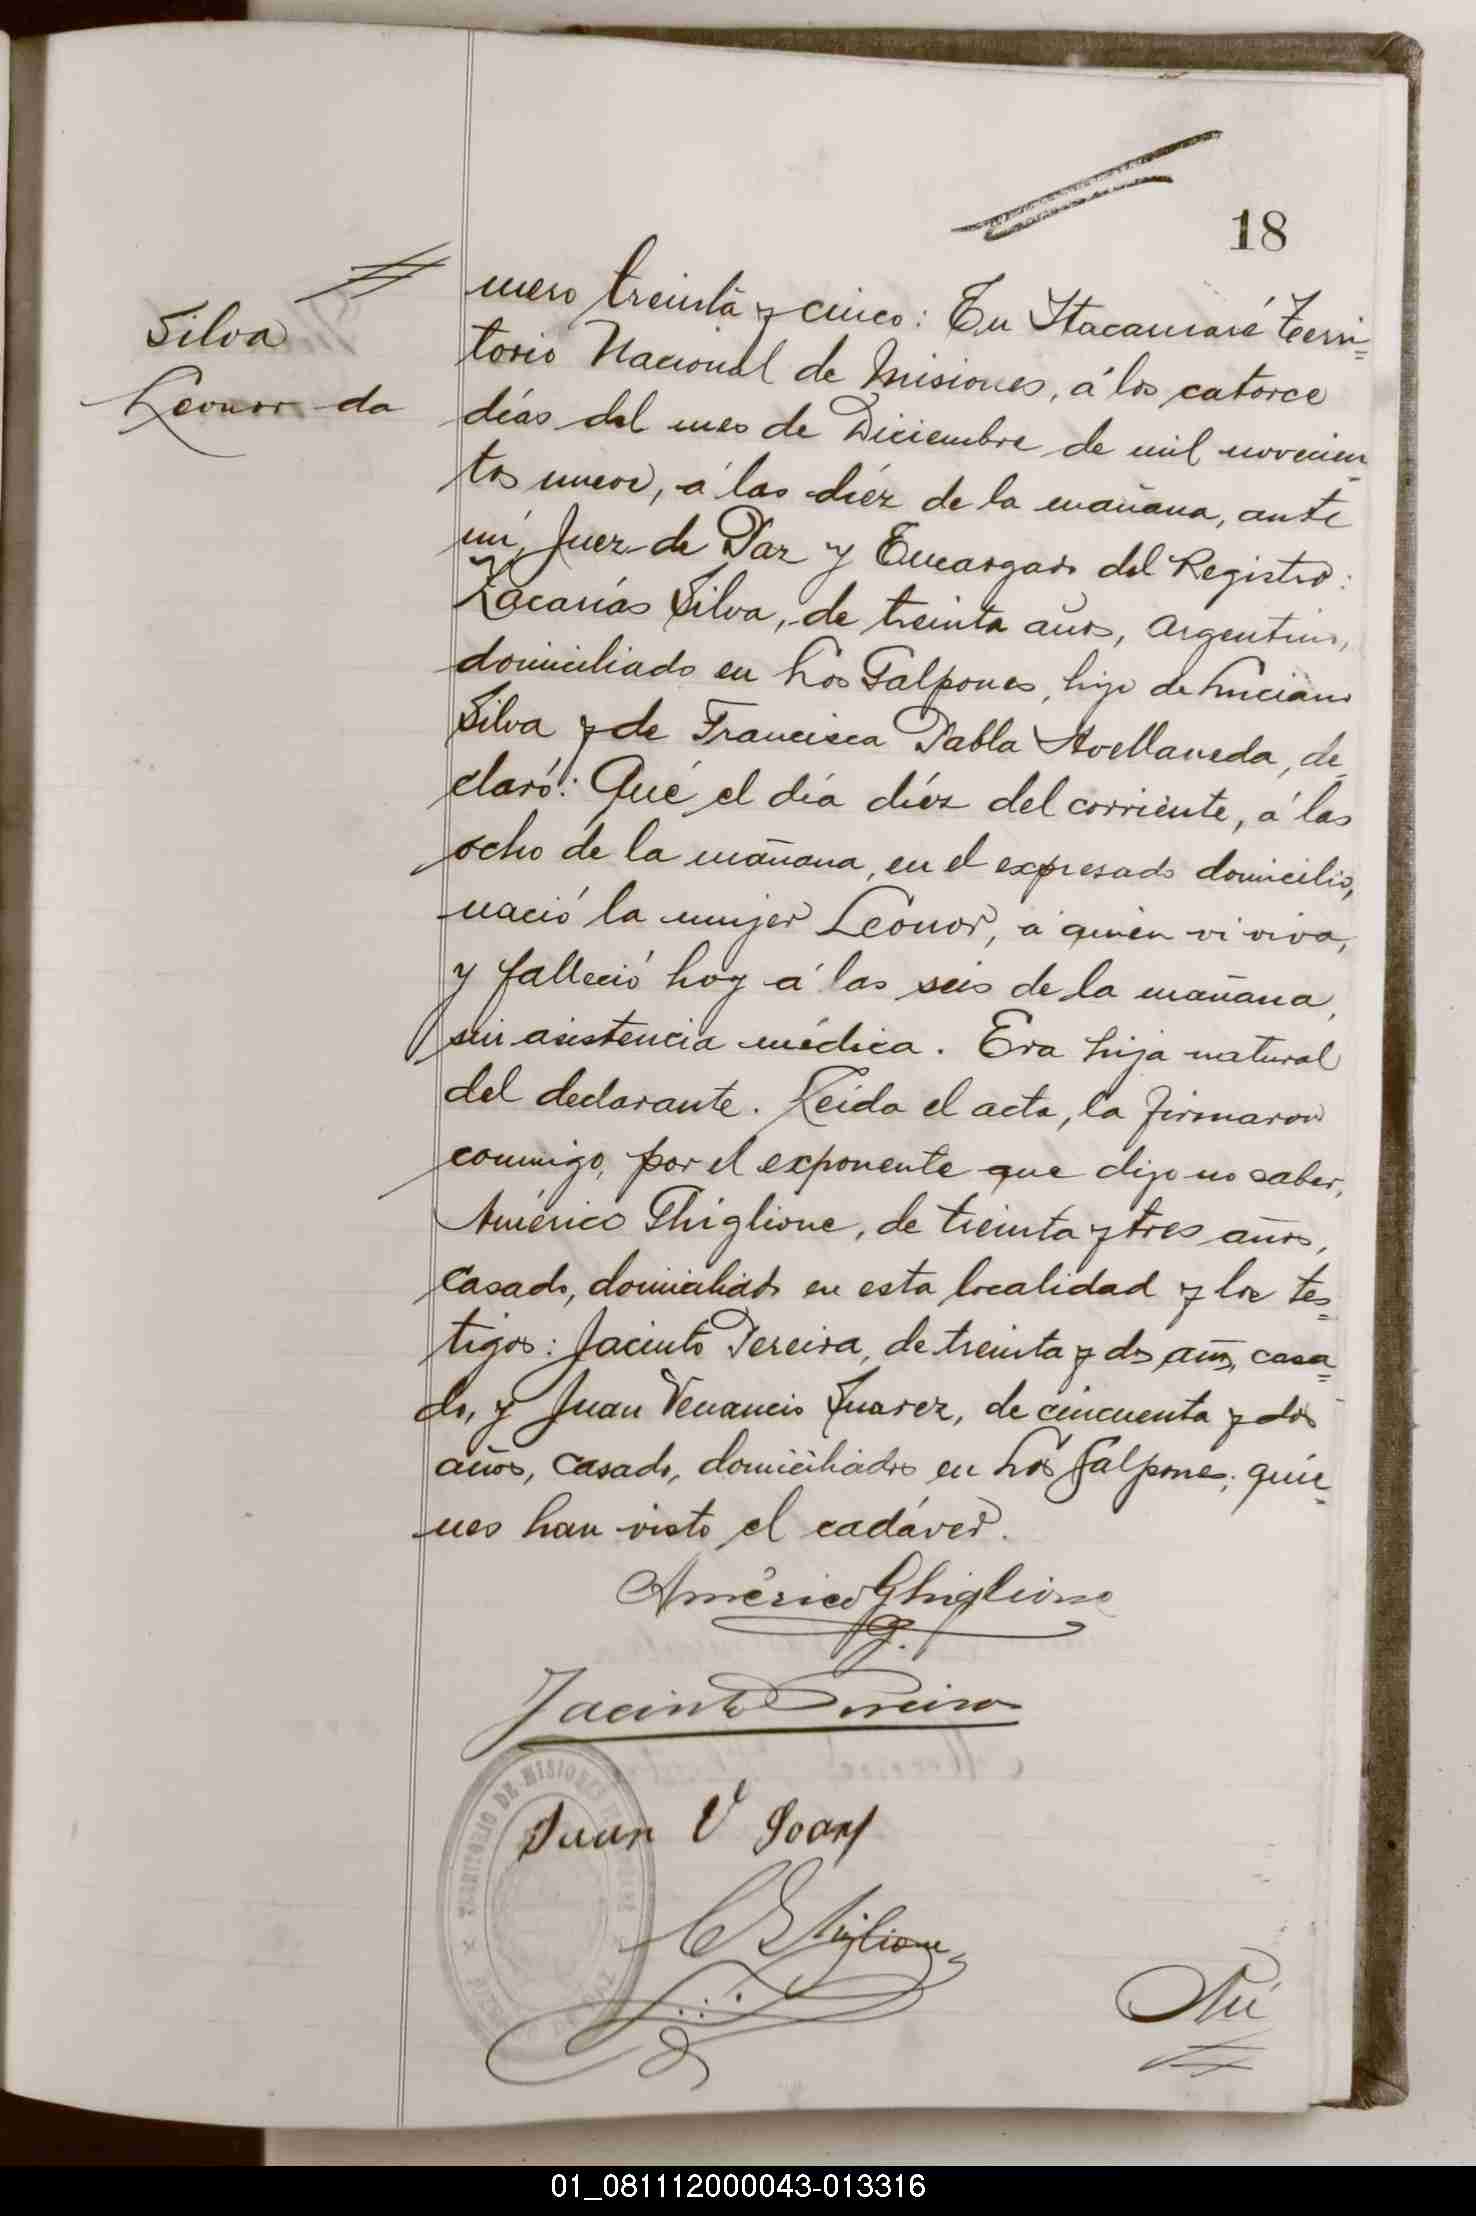 18
Silva
Leonor da
mero treinta y cinco: En Itacaruaré Terri=
torio Nacional de Misiones, á los catorce
días del mes de Diciembre de mil novecien=
tos nueve, á las diéz de la mañana, ante
mí, Juez de Paz y Encargado del Registro:
Zacarías Silva, de treinta años, argentino,
domiciliado en Los Galpones, hijo de Luciano
Silva y de Francisca Pabla Avellaneda, de=
claró: Qué el día diéz del corriente, á las
ocho de la mañana, en el expresado domicilio,
nació la mujer Leonor, á quien vi viva,
y falleció hoy á las seis de la mañana,
sin asistencia médica. Era hija natural
del declarante. Leida el acta, la firmaron
conmigo, por el exponente que dijo no saber,
Américo Ghiglione, de treinta y tres años,
casado, domiciliado en esta localidad y los tes=
tigos: Jacinto Pereira, de treinta y dos años, casa=
do, y Juan Venancio Suarez, de cincuenta y dos
años, casado, domiciliados en Los Galpones; quie=
nes han visto el cadáver.
Américo Ghiglione
Jacinto Pereira
TERRITORIO DE MISIONES
Juan V Soarf
C Ghiglione
Nú
01_081112000043-013316